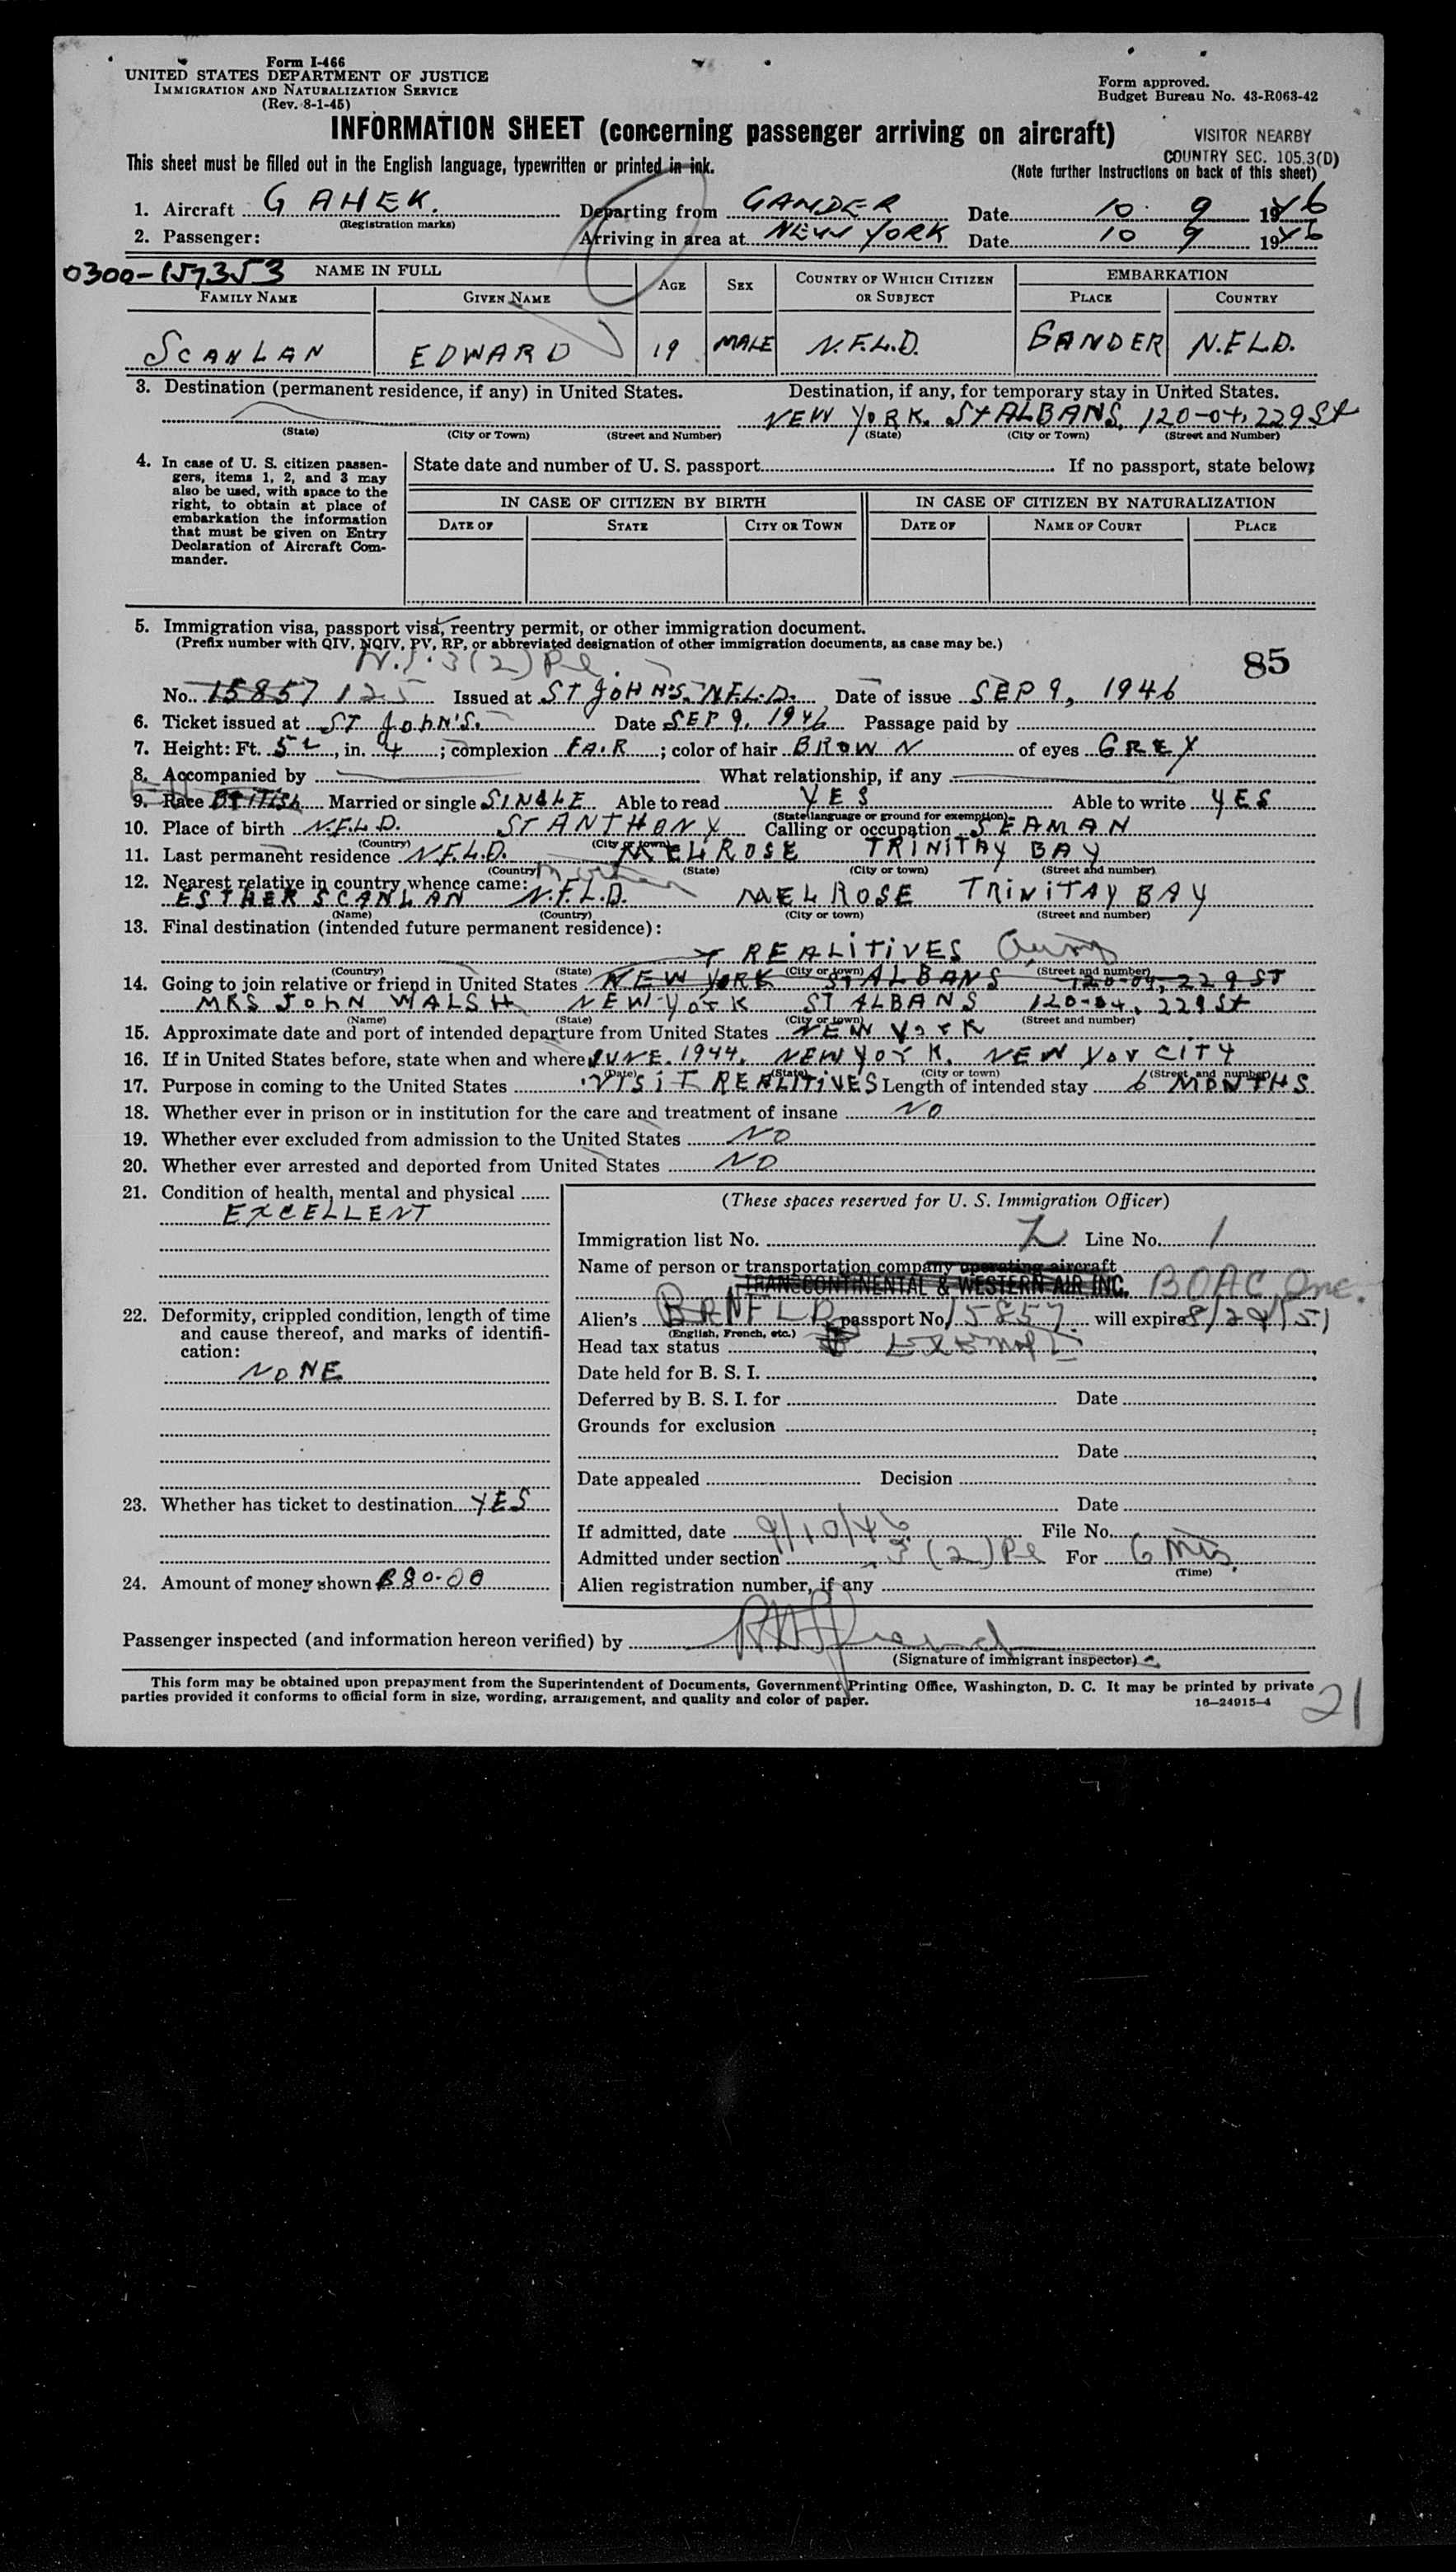 Form I-466
UNITED STATES DEPARTMENT OF JUSTICE
IMMIGRATION AND NATURALIZATION SERVICE
(Rev. 8-1-45)
Form approved.
Budget Bureau No. 43-R063-42
INFORMATION SHEET (concerning passenger arriving on aircraft)
VISITOR NEARBY
COUNTRY SEC. 105.3(D)
This sheet must be filled out in the English language, typewritten or printed in ink.
(Note further Instructions on back of this sheet)
1. Aircraft G AHEK. Departing from GANDER Date 10 9 1946
(Registration marks)
2. Passenger: Arriving in area at NEW YORK Date 10 9 1946
0300-157353 NAME IN FULL AGE SEX COUNTRY OF WHICH CITIZEN OR SUBJECT EMBARKATION
FAMILY NAME GIVEN NAME PLACE COUNTRY
SCANLAN EDWARD 19 MALE N.F.L.D. GANDER N.F.L.D.
3. Destination (permanent residence, if any) in United States. Destination, if any, for temporary stay in United States.
NEW YORK. St ALBANS, 120-04, 229 St
(State) (City or Town) (Street and Number) (State) (City or Town) (Street and Number)
4. In case of U. S. citizen passen-
gers, items 1, 2, and 3 may
also be used, with space to the
right, to obtain at place of
embarkation the information
that must be given on Entry
Declaration of Aircraft Com-
mander.
State date and number of U. S. passport If no passport, state below:
IN CASE OF CITIZEN BY BIRTH IN CASE OF CITIZEN BY NATURALIZATION
DATE OF STATE CITY OR TOWN DATE OF NAME OF COURT PLACE
5. Immigration visa, passport visa, reentry permit, or other immigration document.
(Prefix number with QIV, NQIV, PV, RP, or abbreviated designation of other immigration documents, as case may be.)
3(2) Pl. 85
No. 15857 125 Issued at ST JOHN'S. N.F.L.D. Date of issue SEP 9, 1946
6. Ticket issued at ST JOHN'S. Date SEP 9. 1946 Passage paid by
7. Height: Ft. 5, in. 4; complexion FAIR; color of hair BROWN of eyes GREY
8. Accompanied by What relationship, if any
9. Race BRITISH Married or single SINGLE Able to read YES Able to write YES
(State language or ground for exemption)
10. Place of birth N.F.L.D. ST ANTHONY Calling or occupation SEAMAN
(Country) (City or town)
11. Last permanent residence N.F.L.D. MELROSE TRINITAY BAY
(Country) (State) (City or town) (Street and number)
12. Nearest relative in country whence came: Mother
ESTHER SCANLAN N.F.L.D. MELROSE TRINITAY BAY
(Name) (Country) (City or town) (Street and number)
13. Final destination (intended future permanent residence):
REALITIVES Aunt
(Country) (State) (City or town) (Street and number)
14. Going to join relative or friend in United States NEW YORK ST ALBANS 120-04, 229 ST
MRS JOHN WALSH NEW-YORK ST ALBANS 120-04, 229 St
(Name) (State) (City or town) (Street and number)
15. Approximate date and port of intended departure from United States NEW YORK
16. If in United States before, state when and where JUNE. 1944. NEW YORK. NEW YOR CITY
(Date) (State) (City or town) (Street and number)
17. Purpose in coming to the United States VISIT REALITIVES Length of intended stay 6 MONTHS
18. Whether ever in prison or in institution for the care and treatment of insane NO
19. Whether ever excluded from admission to the United States NO
20. Whether ever arrested and deported from United States NO
21. Condition of health, mental and physical
EXCELLENT
22. Deformity, crippled condition, length of time
and cause thereof, and marks of identifi-
cation:
NONE
23. Whether has ticket to destination YES
24. Amount of money shown 80.00
(These spaces reserved for U. S. Immigration Officer)
Immigration list No. 2 Line No. 1
Name of person or transportation company operating aircraft
TRANSCONTINENTAL & WESTERN AIR INC. BOAC Inc.
Alien's NFLD passport No. 15857 will expire 8/29/51
(English, French, etc.)
Head tax status Exempt
Date held for B. S. I.
Deferred by B. S. I. for Date
Grounds for exclusion
Date
Date appealed Decision
Date
If admitted, date 9/10/46 File No.
Admitted under section 3(2) Pl For 6 Mts.
(Time)
Alien registration number, if any
Passenger inspected (and information hereon verified) by
(Signature of immigrant inspector)
This form may be obtained upon prepayment from the Superintendent of Documents, Government Printing Office, Washington, D. C. It may be printed by private
parties provided it conforms to official form in size, wording, arrangement, and quality and color of paper.
16—24915-4
21